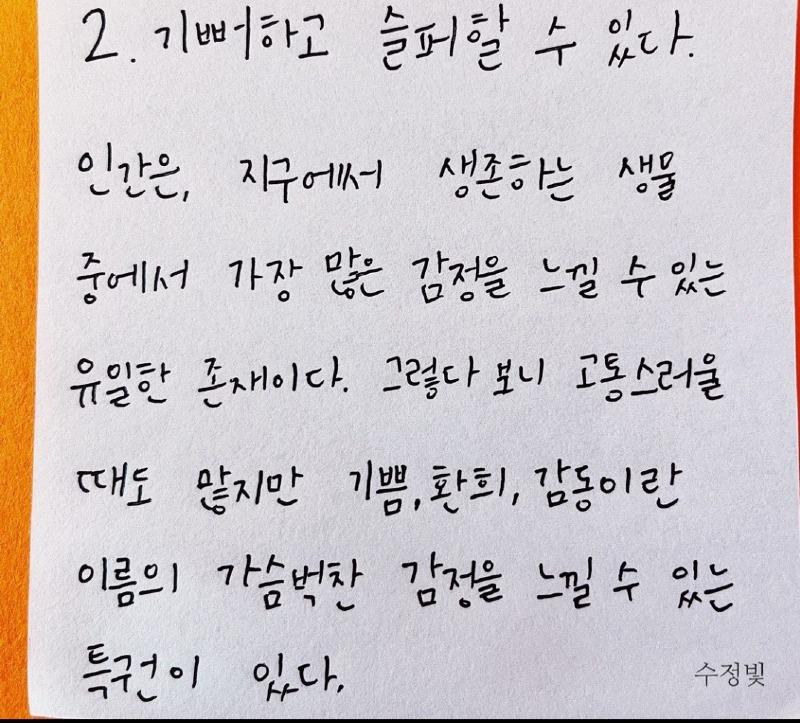 2. 기뻐하고 슬퍼할 수 있다.
인간은, 지구에서 생존하는 생물
중에서 가장 많은 감정을 느낄 수 있는
유일한 존재이다. 그렇다 보니 고통스러울
때도 많지만 기쁨, 환희, 감동이란
이름의 가슴벅찬 감정을 느낄 수 있는
특권이 있다.
수정빛